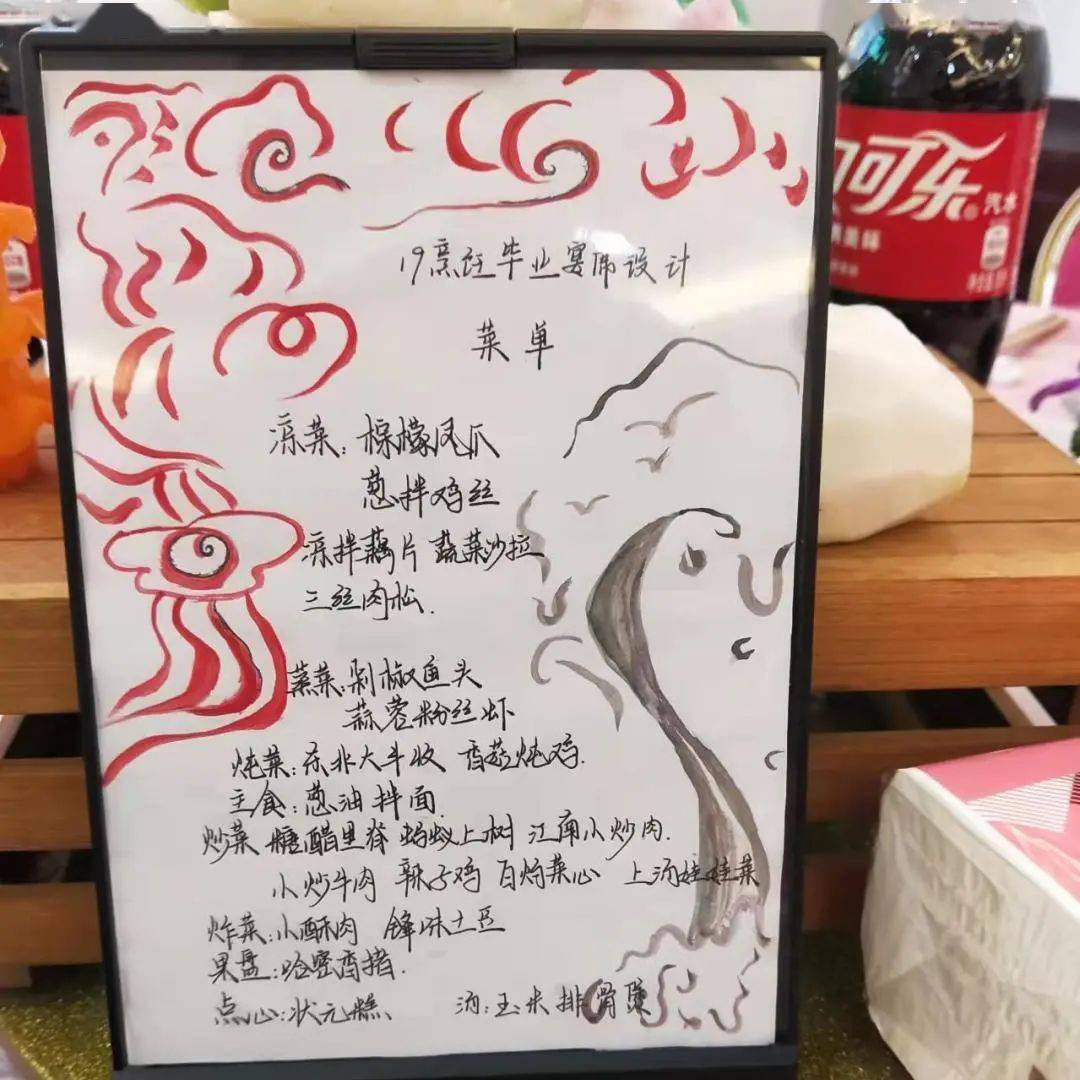 19烹饪毕业宴席设计
菜单
凉菜：柠檬凤爪
葱拌鸡丝
凉拌藕片 蔬菜沙拉
三丝肉松.
蒸菜.剁椒鱼头
蒜蓉粉丝虾
炖菜：东北大丰收 香菇炖鸡.
主食：葱油拌面.
炒菜 糖醋里脊 蚂蚁上树 江南小炒肉.
小炒牛肉 辣子鸡 白灼菜心 上汤娃娃菜
炸菜：小酥肉 锋味土豆
果盘：哈密香猪.
点心：状元糕 汤：玉米排骨煲
可乐
汽水